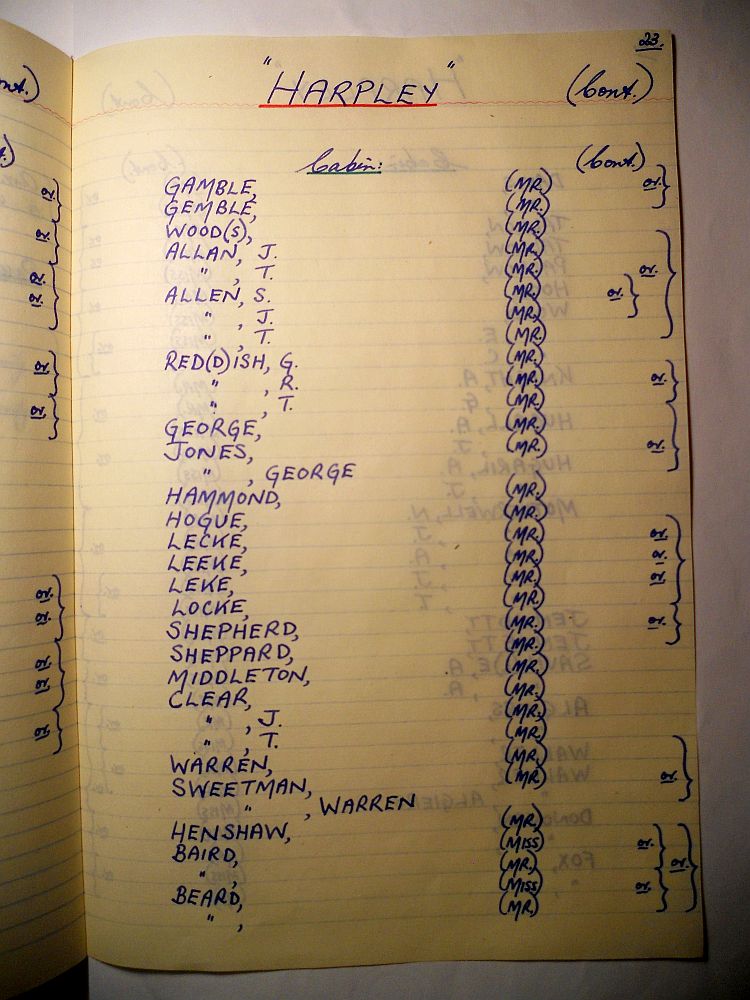 23.
"HARPLEY" (Cont.)
Cabin: (Cont.)
GAMBLE, (MR.) or.
GEMBLE, (MR.)
WOOD(S), (MR.)
ALLAN, J. (MR.)
" , T. (MR.) or.
ALLEN, S. (MR.) or.
" , J. (MR.)
" , T. (MR.)
RED(D)ISH, G. (MR.)
" , R. (MR.) or.
" , T. (MR.)
GEORGE, (MR.)
JONES, (MR.) or.
" , GEORGE
HAMMOND, (MR.)
HOGUE, (MR.)
LECKE, (MR.) or.
LEEKE, (MR.) or.
LEKE, (MR.) or.
LOCKE, (MR.)
SHEPHERD, (MR.) or.
SHEPPARD, (MR.)
MIDDLETON, (MR.)
CLEAR, (MR.)
" , J. (MR.)
" , T. (MR.)
WARREN, (MR.)
SWEETMAN, (MR.) or.
" , WARREN
HENSHAW, (MR.)
BAIRD, (MISS) or.
" , (MR.) or.
BEARD, (MISS) or.
" , (MR.)